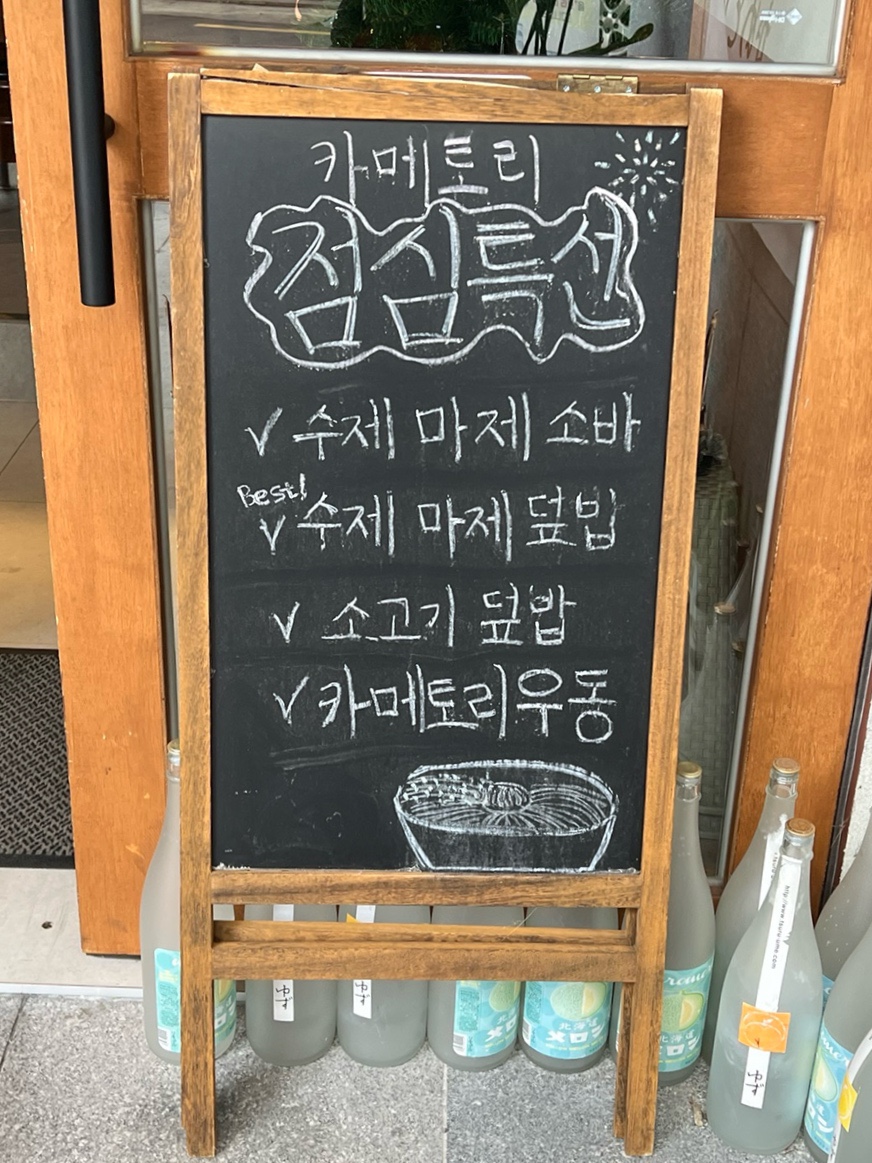 카메토리
점심특선
✓ 수제 마제 소바
Best!
✓ 수제 마제 덮밥
✓ 소고기 덮밥
✓ 카메토리우동
ゆず
ゆず
北海道
メロン
北海道
メロン
ゆず